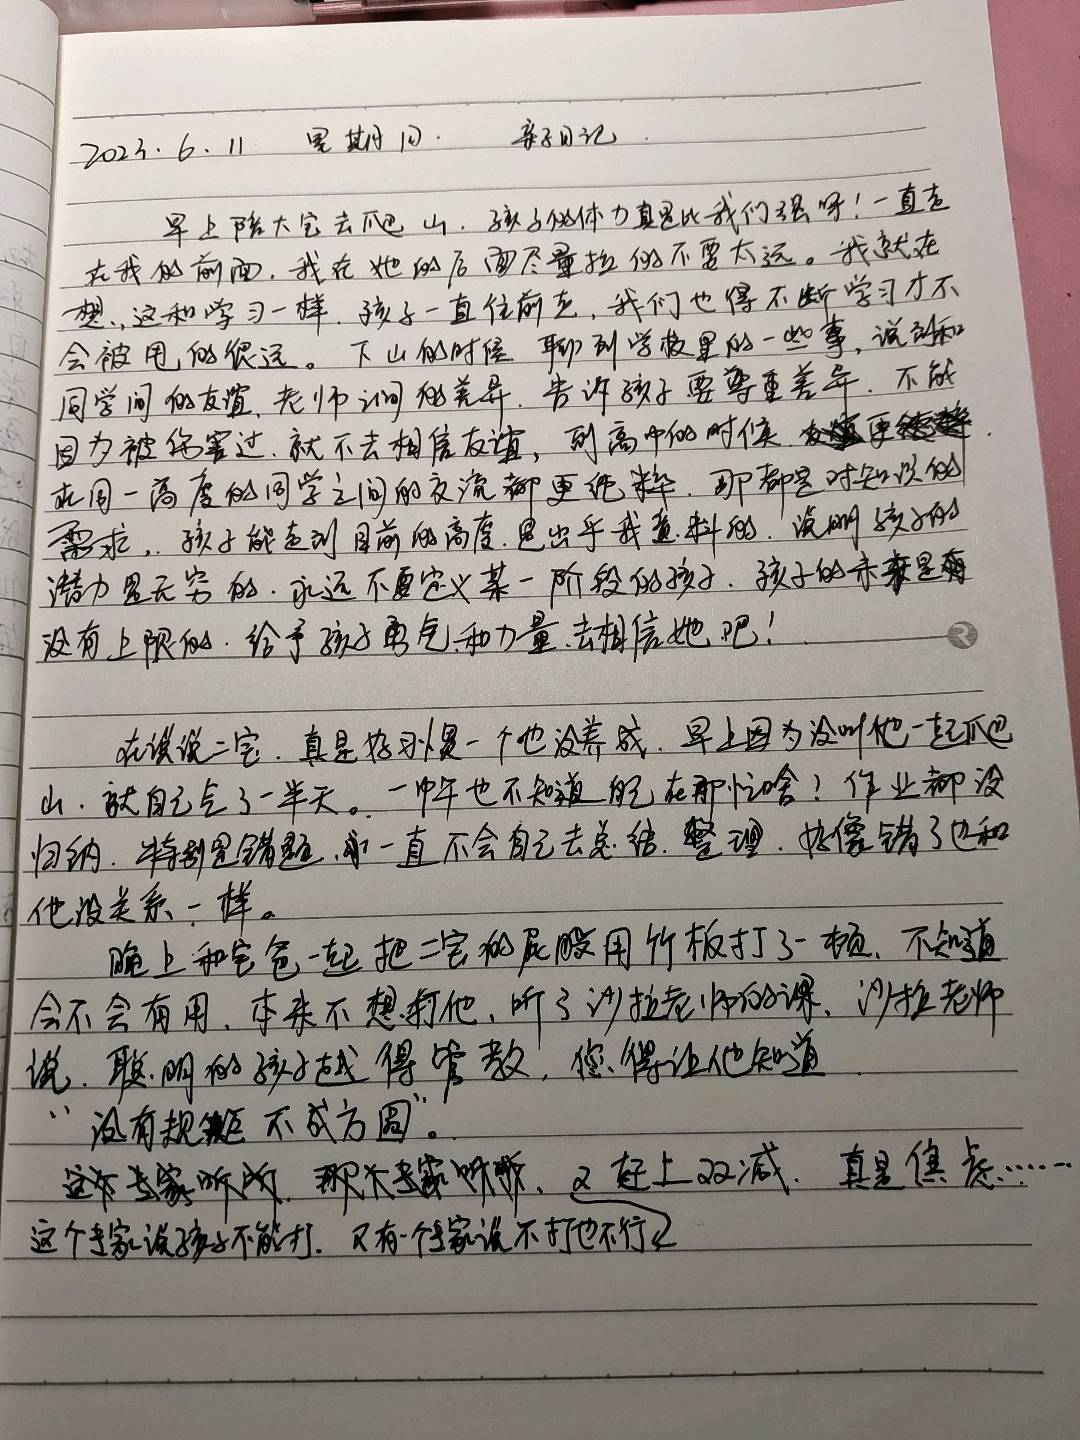 2023.6.11 星期日. 亲子日记.
早上陪大宝去爬山.孩子的体力真是比我们强呀!一直走
在我的前面.我在她的后面尽量拉的不要太远。我就在
想,这和学习一样.孩子一直往前走,我们也得不断学习才不
会被甩的很远。下山的时候聊到学校里的一些事,说到和
同学间的友谊,老师间的差异.告诉孩子要尊重差异.不能
因为被伤害过.就不去相信友谊,到高中的时候
在同一高度的同学之间的交流都更纯粹.那都是对知识的
需求,.孩子能走到目前的高度.是出乎我意料的.说明孩子的
潜力是无穷的.永远不要定义某一阶段的孩子.孩子的未来是
没有上限的.给予孩子勇气和力量.去相信她吧!
在谈谈二宝.真是好习惯一个也没养成.早上因为没叫他一起爬
山.就自己气了一半天。一中午也不知道自己在那忙啥!作业都没
归纳.特别是错题,一直不会自己去总结.整理.好像错了也和
他没关系一样。
晚上和宝爸一起把二宝的屁股用竹板打了一顿.不知道
会不会有用.本来不想打他,听了沙拉老师的课.沙拉老师
说.聪明的孩子越得管教,您得让他知道
“没有规矩不成方圆”。
这个专家听听.那个专家听听,又赶上双减.真是焦虑……
这个专家说孩子不能打.又有一个专家说不打也不行